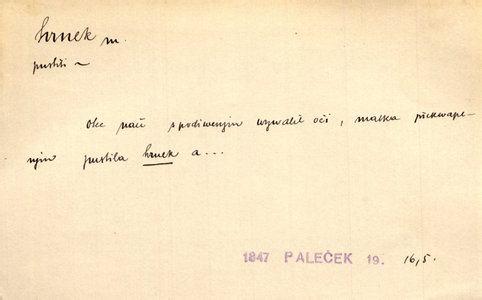 hrnek m.
pustiti ~
Otec naň s podiwenjm wywalil oči, matka překwape-
njm pustila hrnek a...
1847 PALEČEK 19. 16,5.